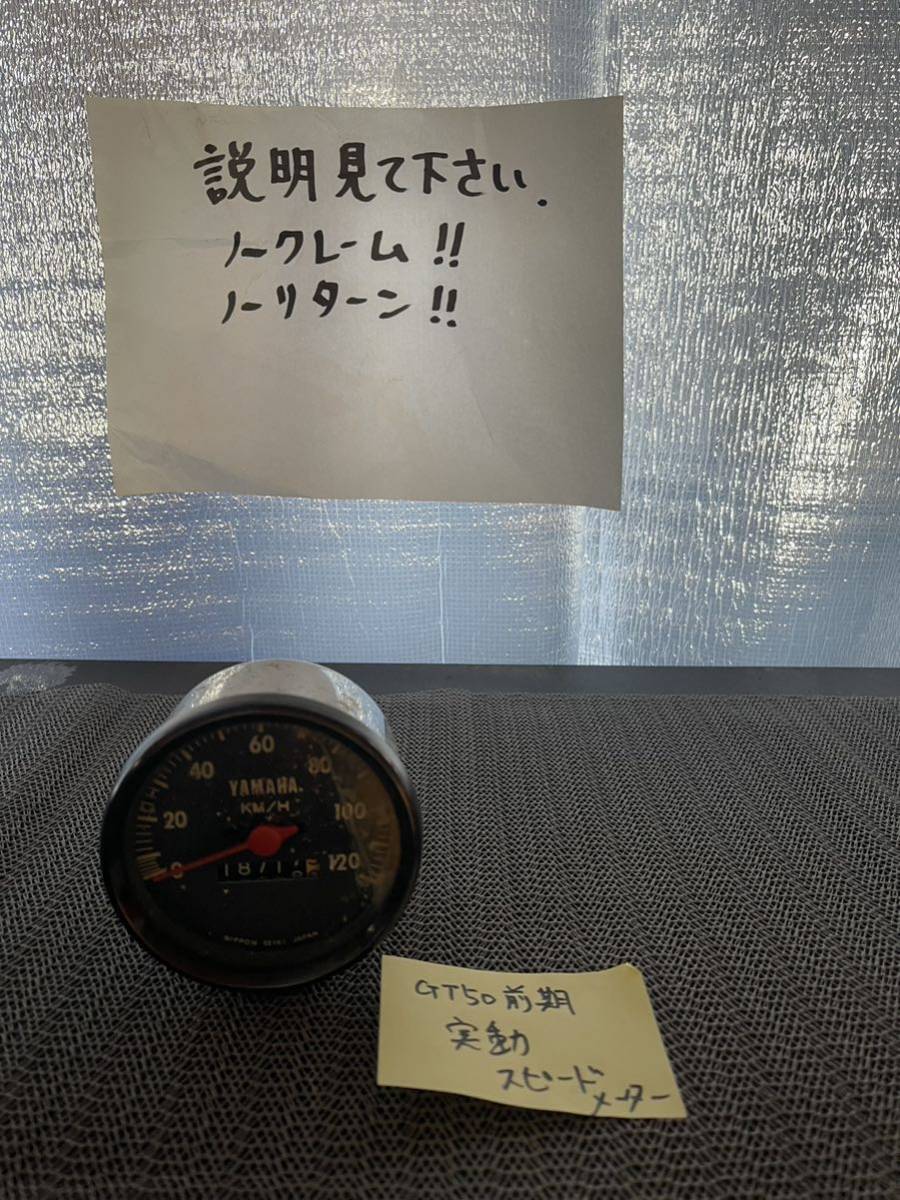 説明見て下さい.
ノークレーム!!
ノーリターン!!
60
40
80
YAMAHA
KM/H
20
100
0
120
NIPPON SEIKI JAPAN
GT50前期
実動
スピードメーター